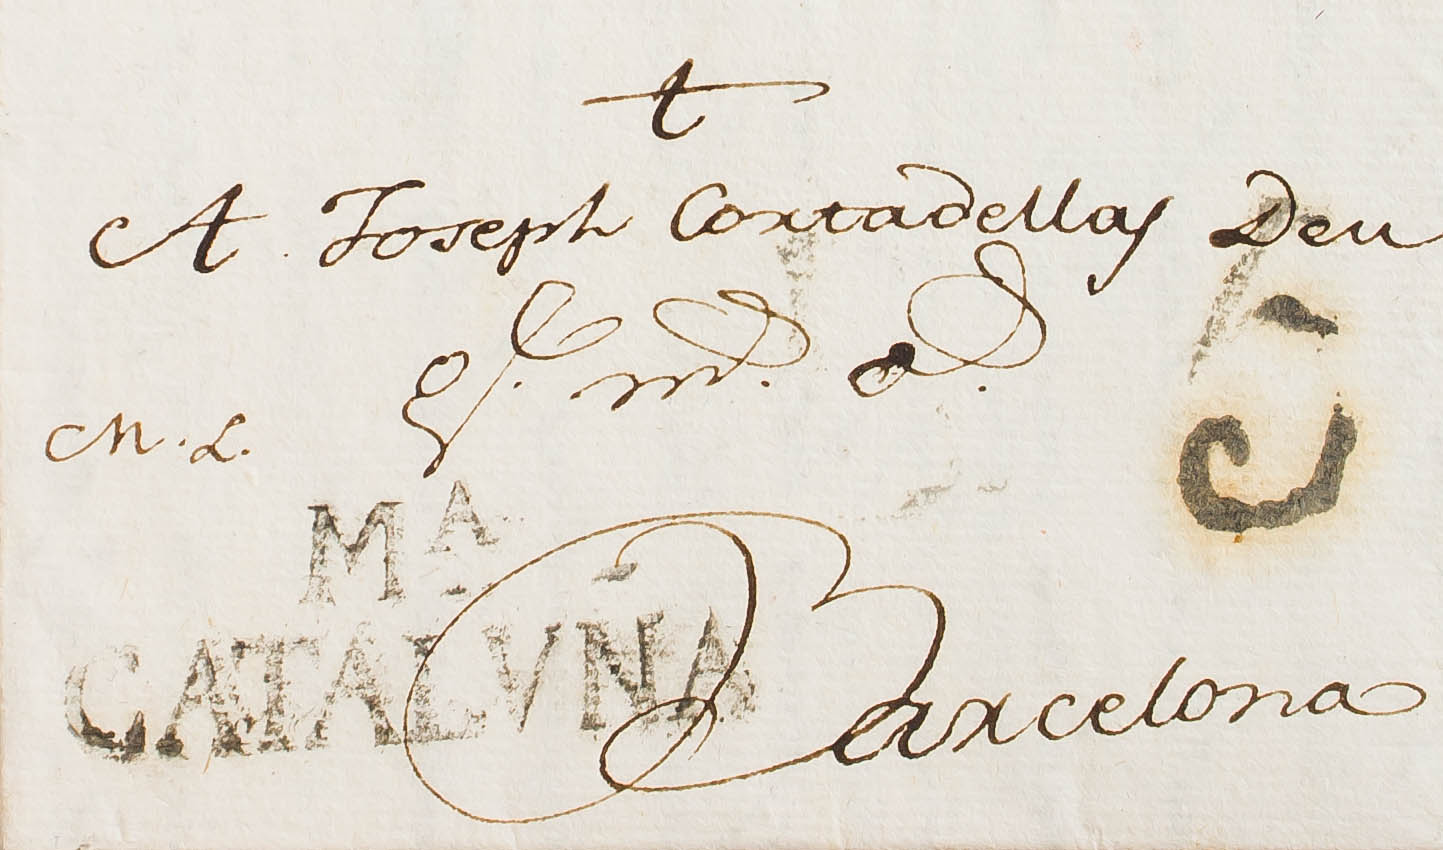 †
A Joseph Cortadellas Deu
g.s m.s a.s
M. L.
5
Mᴬ
CATALUÑA
Barcelona